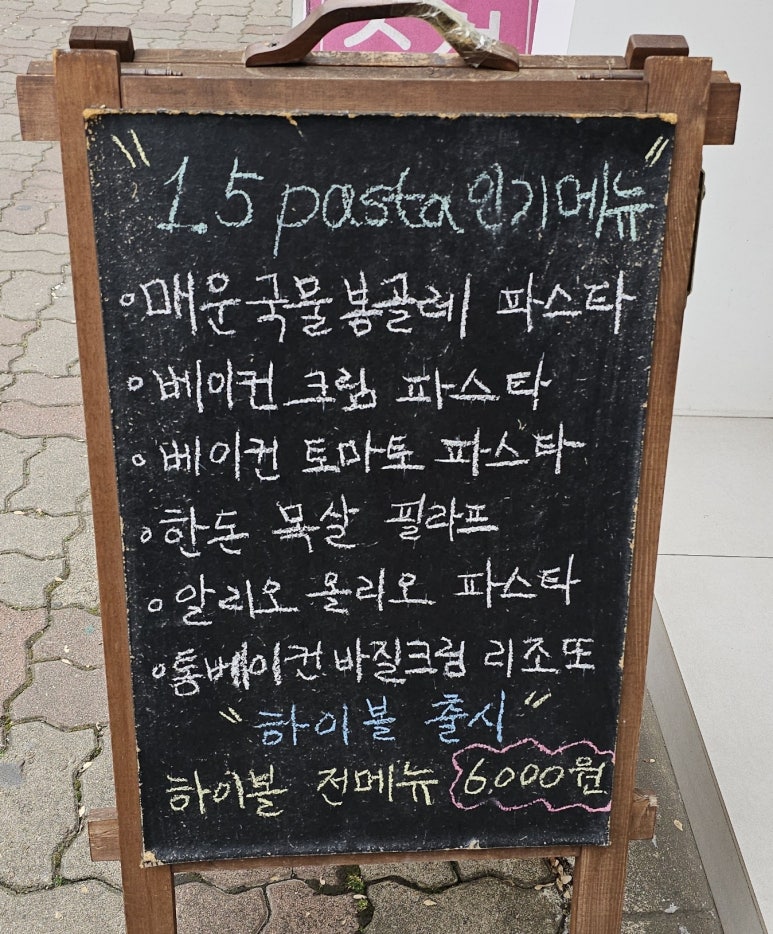 "1.5 pasta 인기메뉴"
◦매운국물봉골레 파스타
◦베이컨크림 파스타
◦베이컨 토마토 파스타
◦한돈 목살 필라프
◦알리오 올리오 파스타
◦통베이컨바질크림 리조또
"하이볼 출시"
하이볼 전메뉴 6.000원